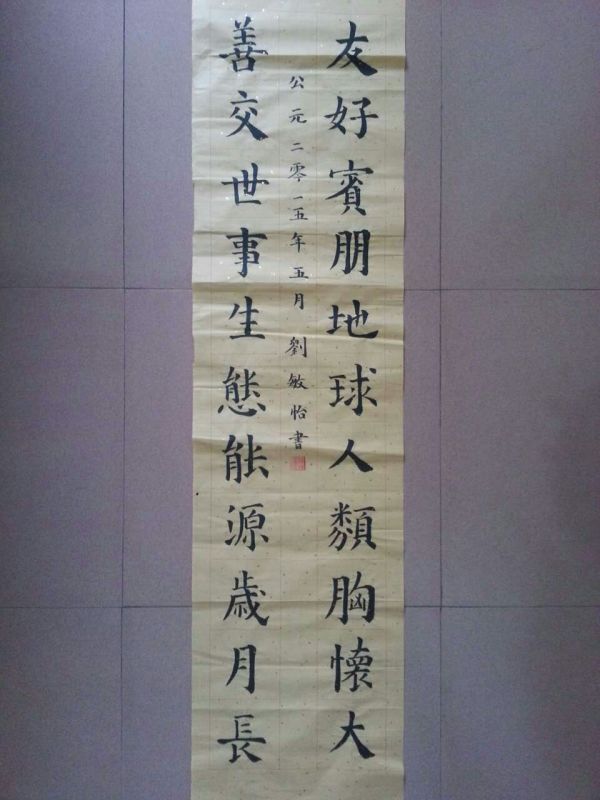 友好賓朋地球人類胸懷大
善交世事生態能源歲月長
公元二零一五年五月劉敏怡書